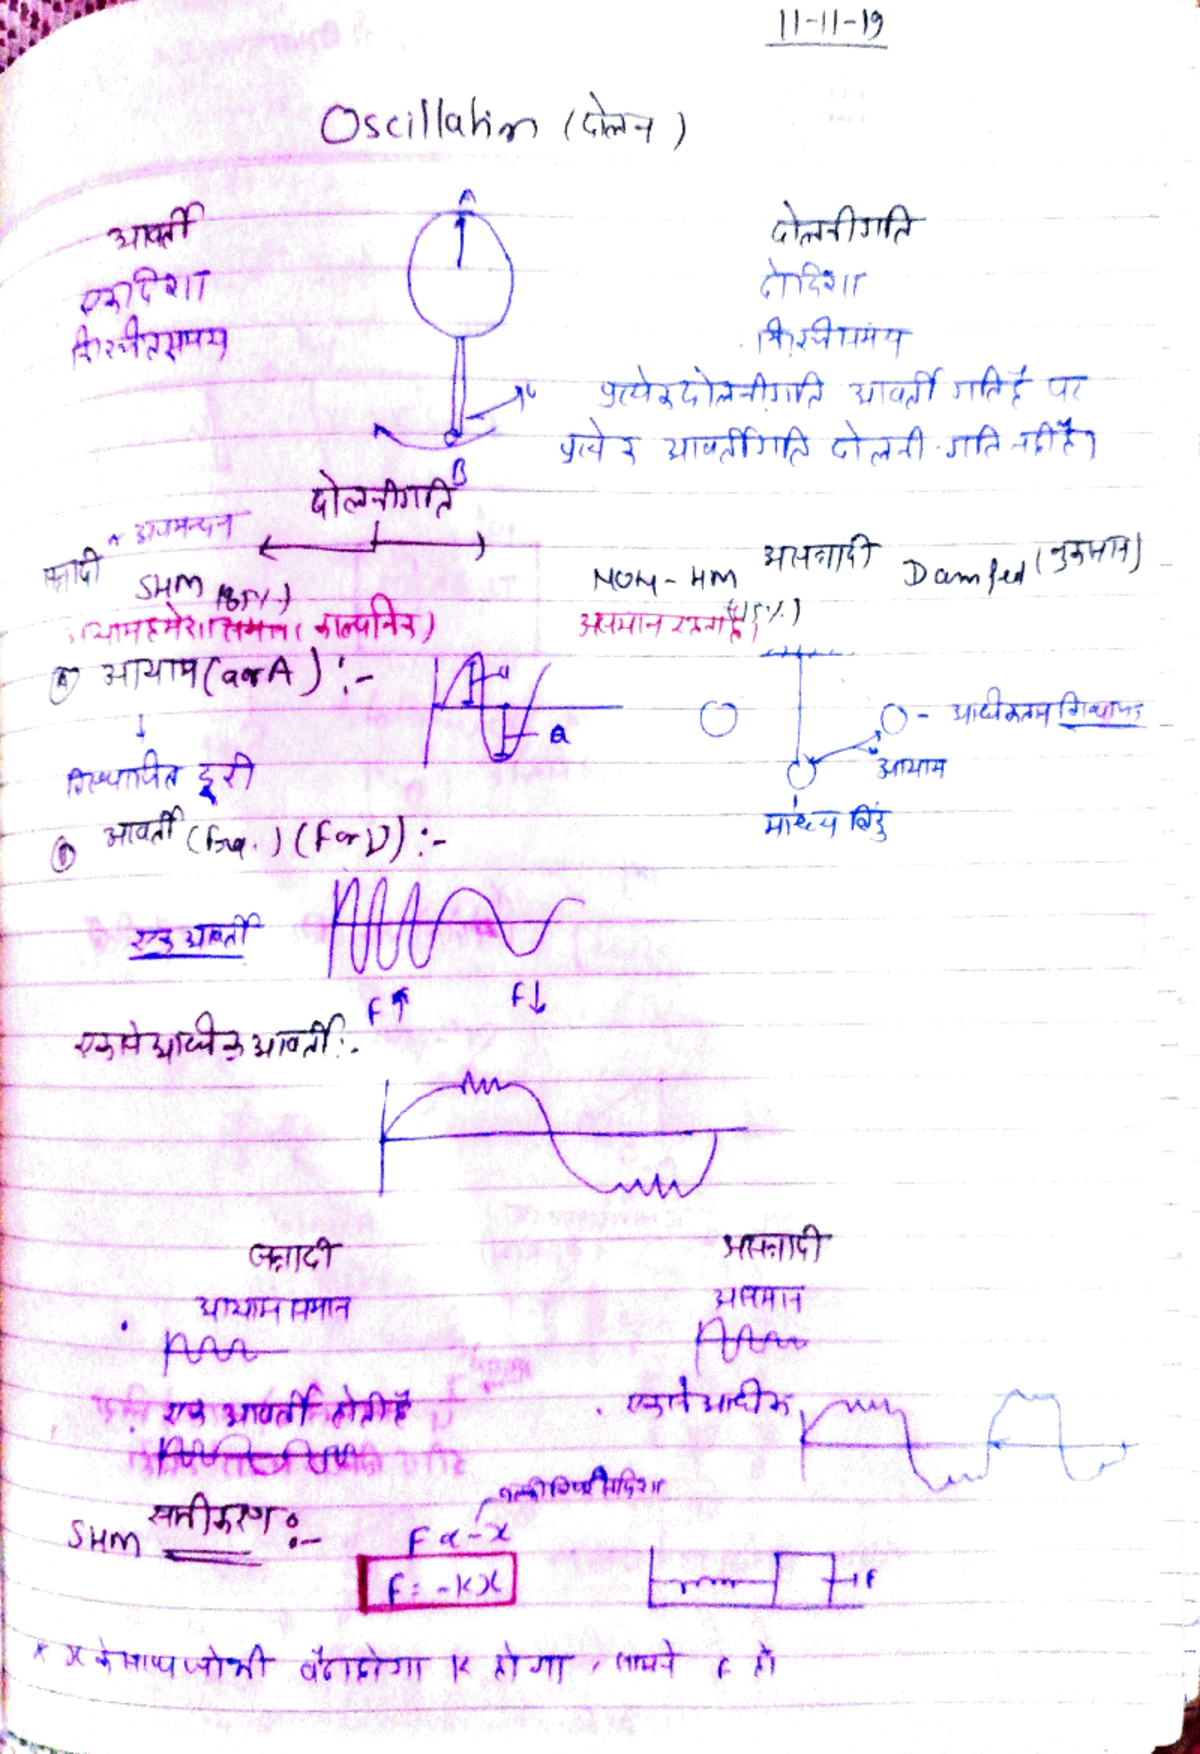 11-11-19
Oscillation (दोलन)
A
आवर्ती
एकदिशा
निश्चितसमय
दोलनीगति
दोदिशा
निश्चीसमय
प्रत्येक दोलनीगति आवर्ती गति है पर
प्रत्येक आवर्तीगति दोलनी गति नहीं है।
B
दोलनीगति
अवमन्दन
SHM
NON-HM
असन्नादी
Damped (नुकसान)
असमान रहता है
(A) आयाम (a or A) :-
a
अधीकतम विस्थापन
आयाम
माध्य बिंदु
विस्थापित दूरी
(B) आवर्ती (Frq.) (F or ν) :-
एक आवर्ती
F↑
F↓
एकसे अधीक आवर्ती :-
सन्नादी
असन्नादी
आयाम समान
असमान
एक आवर्ती होती है
एकसे अधीक
SHM समीकरण :-
F α -x
F = -kx
F
* x के साथ जोभी बैठा होगा K होगा, सामने F हो